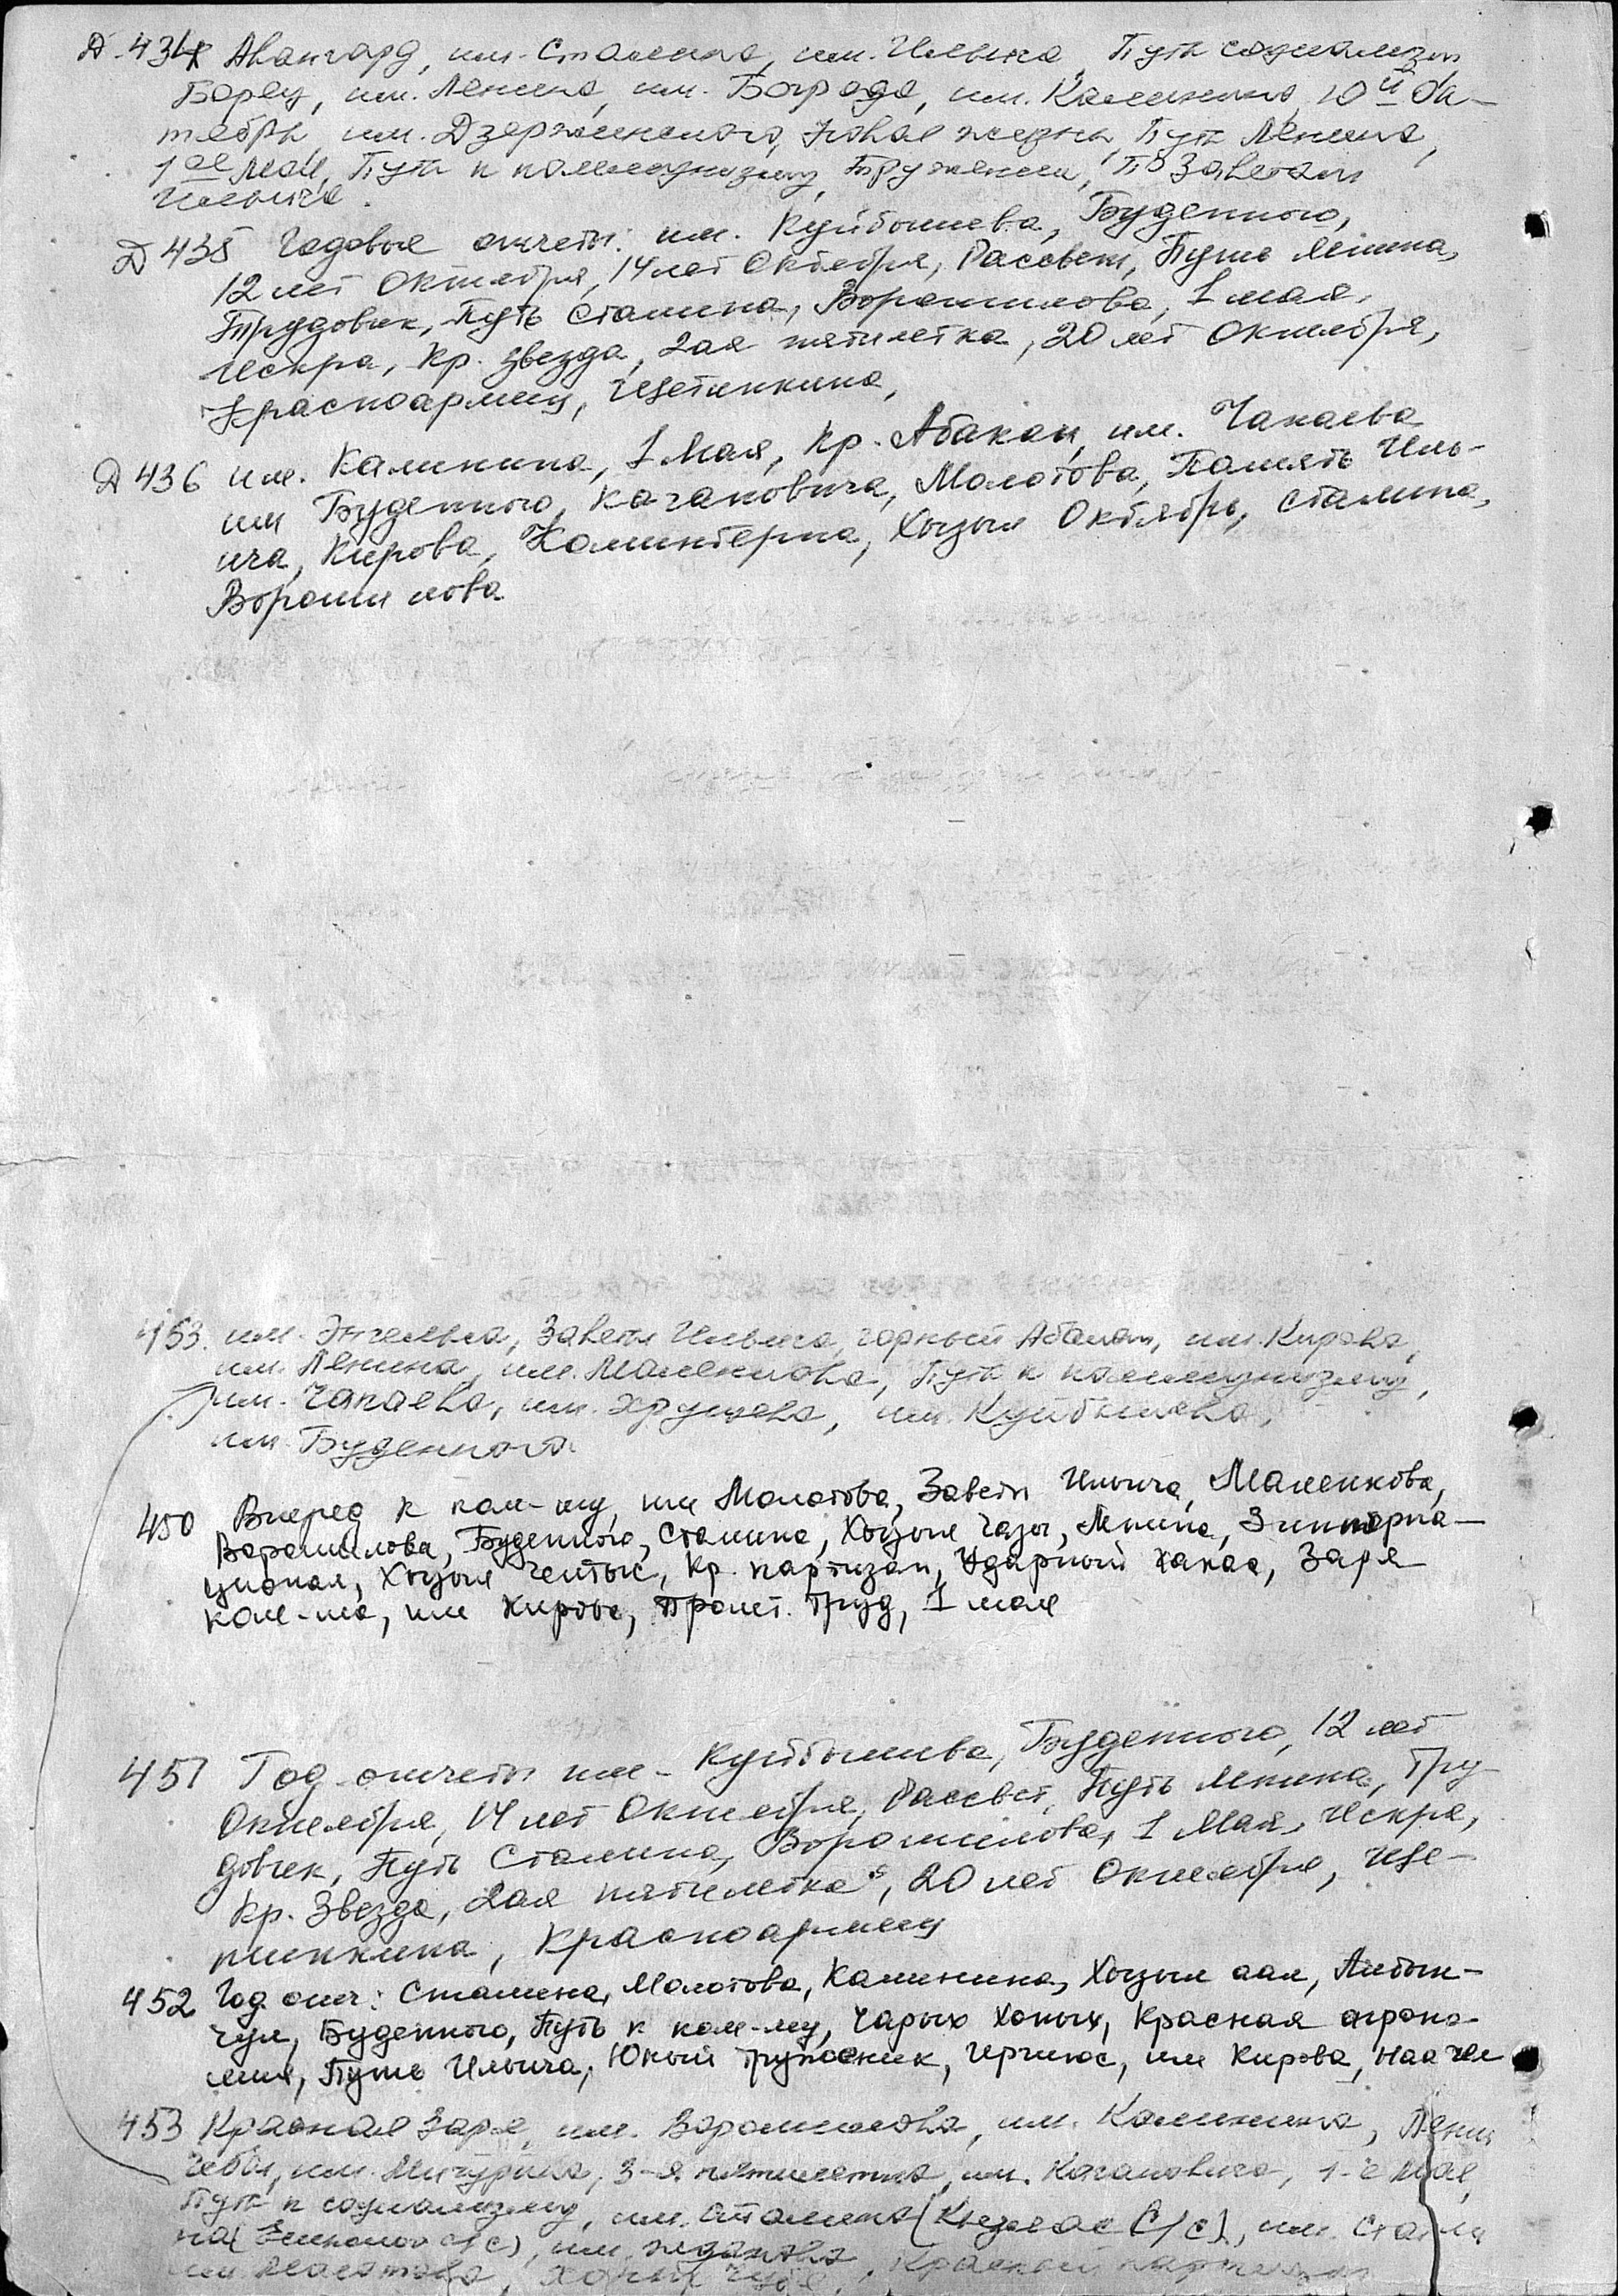 Д-434 Авангард, им. Сталина, им. Ильича, Путь социализма
Борец, им. Ленина, им. Бограда, им. Калинина, 10й Ок-
тябрь, им. Дзержинского, Новая жизнь, Путь Ленина,
1ое Мая, Путь к коммунизму, Труженик, По Заветам
Ильича.
Д 435 Годовые отчеты: им. Куйбышева, Буденного,
12 лет Октября, 14 лет Октября, Рассвет, Путь Ленина,
Трудовик, Путь Сталина, Ворошилова, 1 мая,
Искра, Кр. звезда, 2ая пятилетка, 20 лет Октября,
Красноармеец, Щетинкина,
Д 436 им. Калинина, 1 Мая, Кр. Абакан, им. Чапаева
им Буденного, Кагановича, Молотова, Память Иль-
ича, Кирова, Коминтерна, Хызыл Октябрь, Сталина,
Ворошилова
453. им. Энгельса, Заветы Ильича, горный Абакан, им. Кирова,
им. Ленина, им. Маленкова, Путь к коммунизму,
им. Чапаева, им. Хрущева, им. Куйбышева,
им. Буденного
450 Вперед к ком-му, им Молотова, Заветы Ильича, Маленкова,
Ворошилова, Буденного, Сталина, Хызыл Чазы, Ленина, 3 интерна-
ционал, Хызыл Челтыс, Кр. партизан, Ударный хакас, Заря
ком-ма, им Кирова, Пролет. Труд, 1 мая
451 Год отчеты им- Куйбышева, Буденного, 12 лет
Октября, 14 лет Октября, Рассвет, Путь Ленина, Тру-
довик, Путь Сталина, Ворошилова, 1 Мая, Искра,
Кр. Звезда, 2ая пятилетка, 20 лет Октября, Ще-
тинкина, Красноармеец
452 Год. отч: Сталина, Молотова, Калинина, Хызыл аал,
чул, Буденного, Путь к ком-му, Чарых Хоных, Красная агроно-
мия, Путь Ильича, Юный труженик, им Кирова, Наа Чел
453 Красная Заря, им. Ворошилова, им. Калинина, Ленин
чобы, им. Мичурина, 3-я пятилетка, им. Кагановича, 1-е мая,
Путь к социализму, им. Сталина ( С/с), им. Стали
на( с/с), им. Жданова, Красный партизан
им. Молотова, Хоных